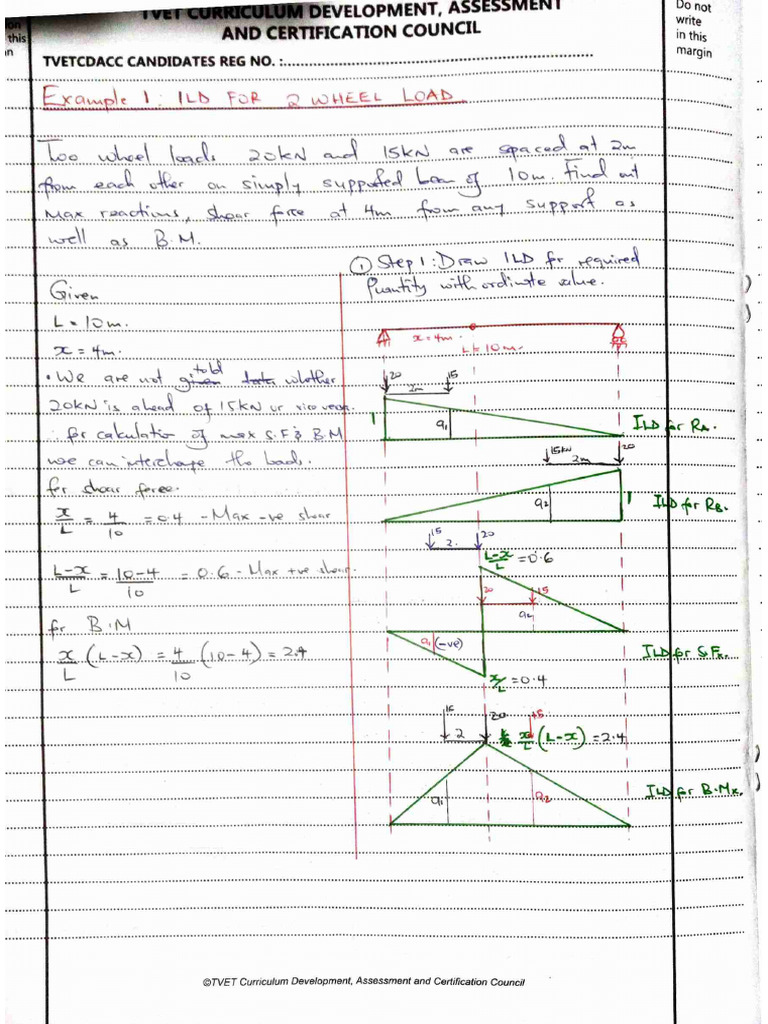 TVET CURRICULUM DEVELOPMENT, ASSESSMENT
AND CERTIFICATION COUNCIL
Do not
write
in this
margin
this
TVETCDACC CANDIDATES REG NO. :
Example 1: ILD FOR 2 WHEEL LOAD
Two wheel loads 20kN and 15kN are spaced at 2m
from each other on simply supported beam of 10m. Find out
Max reactions, shear force at 4m from any support as
well as B.M.
Given
L = 10m.
x = 4m.
• We are not told whether
20kN is ahead of 15kN or vice versa.
∴ for calculation of max S.F & B.M
we can interchange the loads.
for shear force.
x/L = 4/10 = 0.4 - Max -ve shear
L-x/L = 10-4/10 = 0.6 - Max +ve shear.
for B.M
x/L (L-x) = 4/10 (10-4) = 2.4
① Step 1: Draw ILD for required
Quantity with ordinate value.
x = 4m.
L = 10m.
20
15
2m
1
a1
ILD for RA.
15kN
20
2m
a2
1
ILD for RB.
15
20
2.
L-x/L = 0.6
20
15
a2
a1 (-ve)
ILD for S.Fx.
x/L = 0.4
15
20
15
2
x/L (L-x) = 2.4
a1
a2
ILD for B.Mx.
©TVET Curriculum Development, Assessment and Certification Council